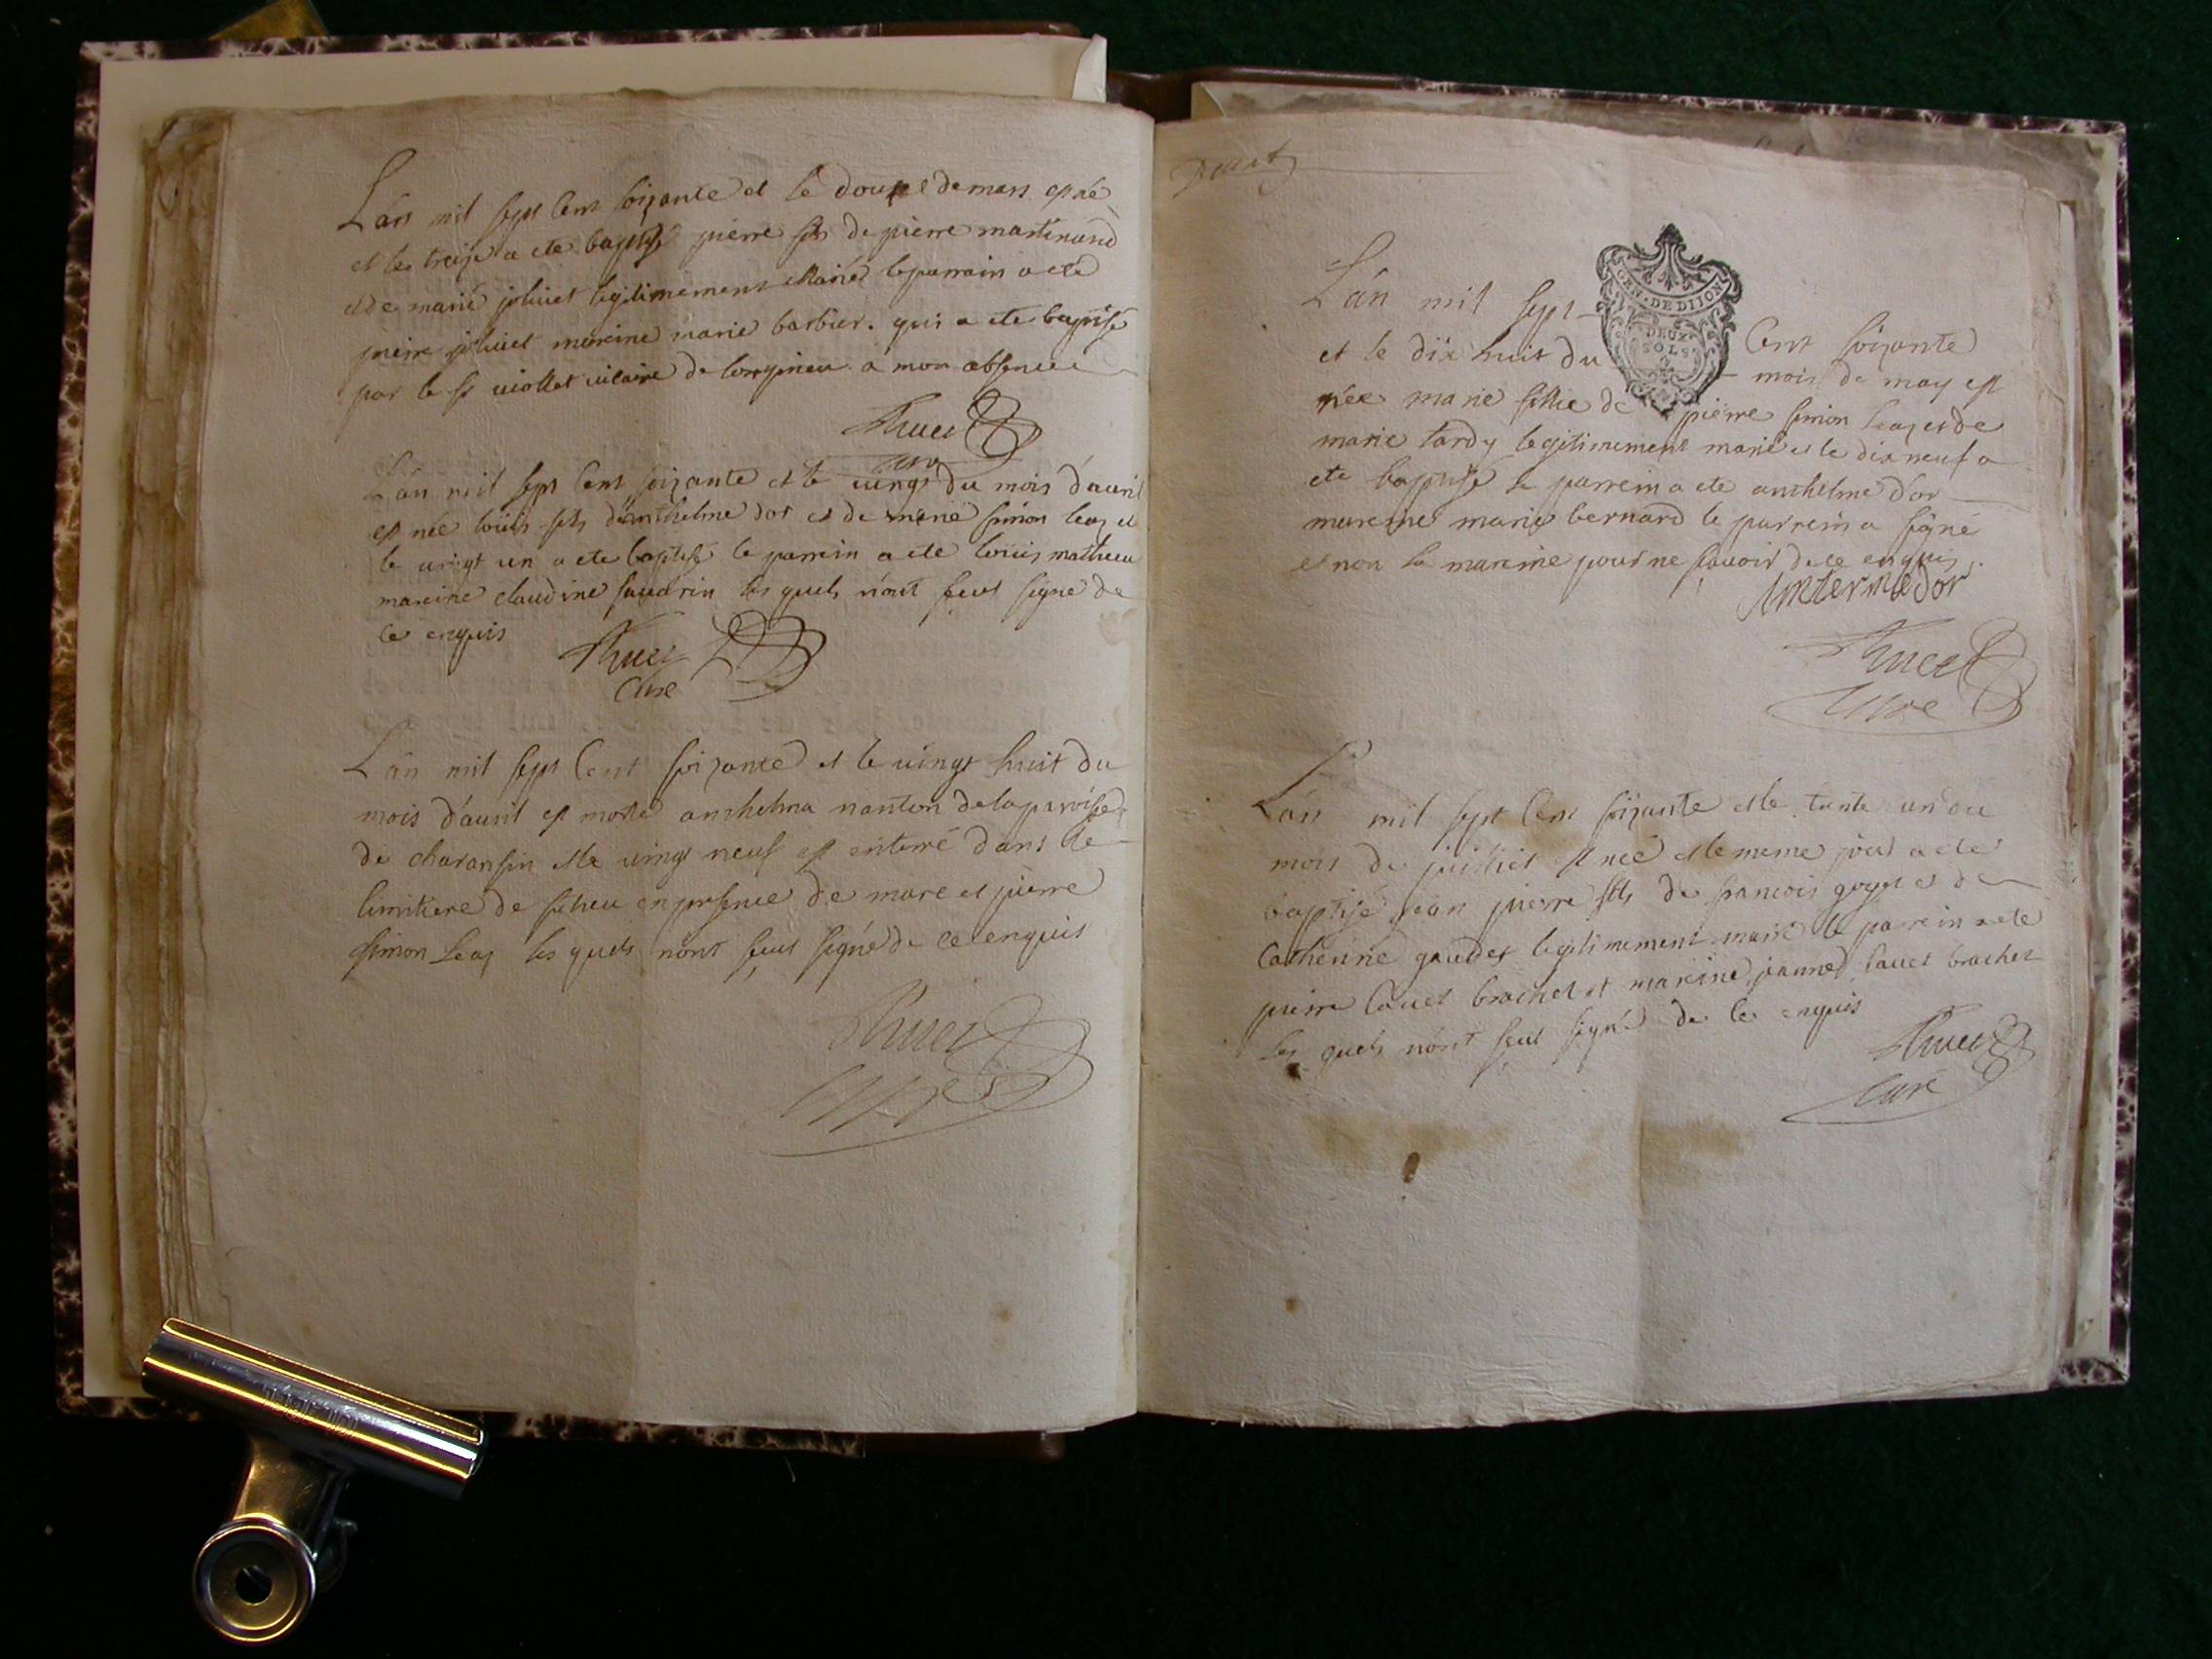 L'an mil sept cent soixante et le douze de mars est né
et le treize a ete baptisé pierre fils de pierre martinand
et de marie joliuet legitimement marié le parrain a ete
pierre joliuet mareine marie barbier. qui a ete baptisé
par le sr uiollet uicaire de a mon absence
cure
L'an mil sept cent soizante et le uingt du mois d'auril
est née louis fils d'anthelme dor et de marie simon leaz et
le uingt un a ete baptisé le parrein a ete louis mathieu
mareine claudine lesquels n'ont sceut signe de
ce enquis
Cure
L'an mil sept cent soizante et le uingt huit du
mois d'auril est morte anthelma nanton de la paroisse
de charansin et le uingt neuf est enterré dans le
cimitiere de sutrieu en presence de marc et pierre
simon leaz les quels n'ont sceut signé de ce enquis
cure
GEN · DE DIJON
DEUX
SOLS
L'an mil sept cent soizante
et le dix huit du mois de may est
née marie fillie de pierre simon leaz et de
marie tardy legitimement marié et le dix neuf a
ete baptisé le parrein a ete anthelme d'or
mareine marie bernard le parrein a signé
et non la mareine pour ne sçauoir de ce enquis.
dor
cure
L'an mil sept cent soizante et le trente un du
mois de juilliet est née et le meme jour a ete
baptisé jean pierre fils de francois goyet et de
Catherine gaudet legitimement marié le parein a ete
pierre brachet et mareine jeanne brachet
les quels n'ont sceut signé de ce enquis
Curé